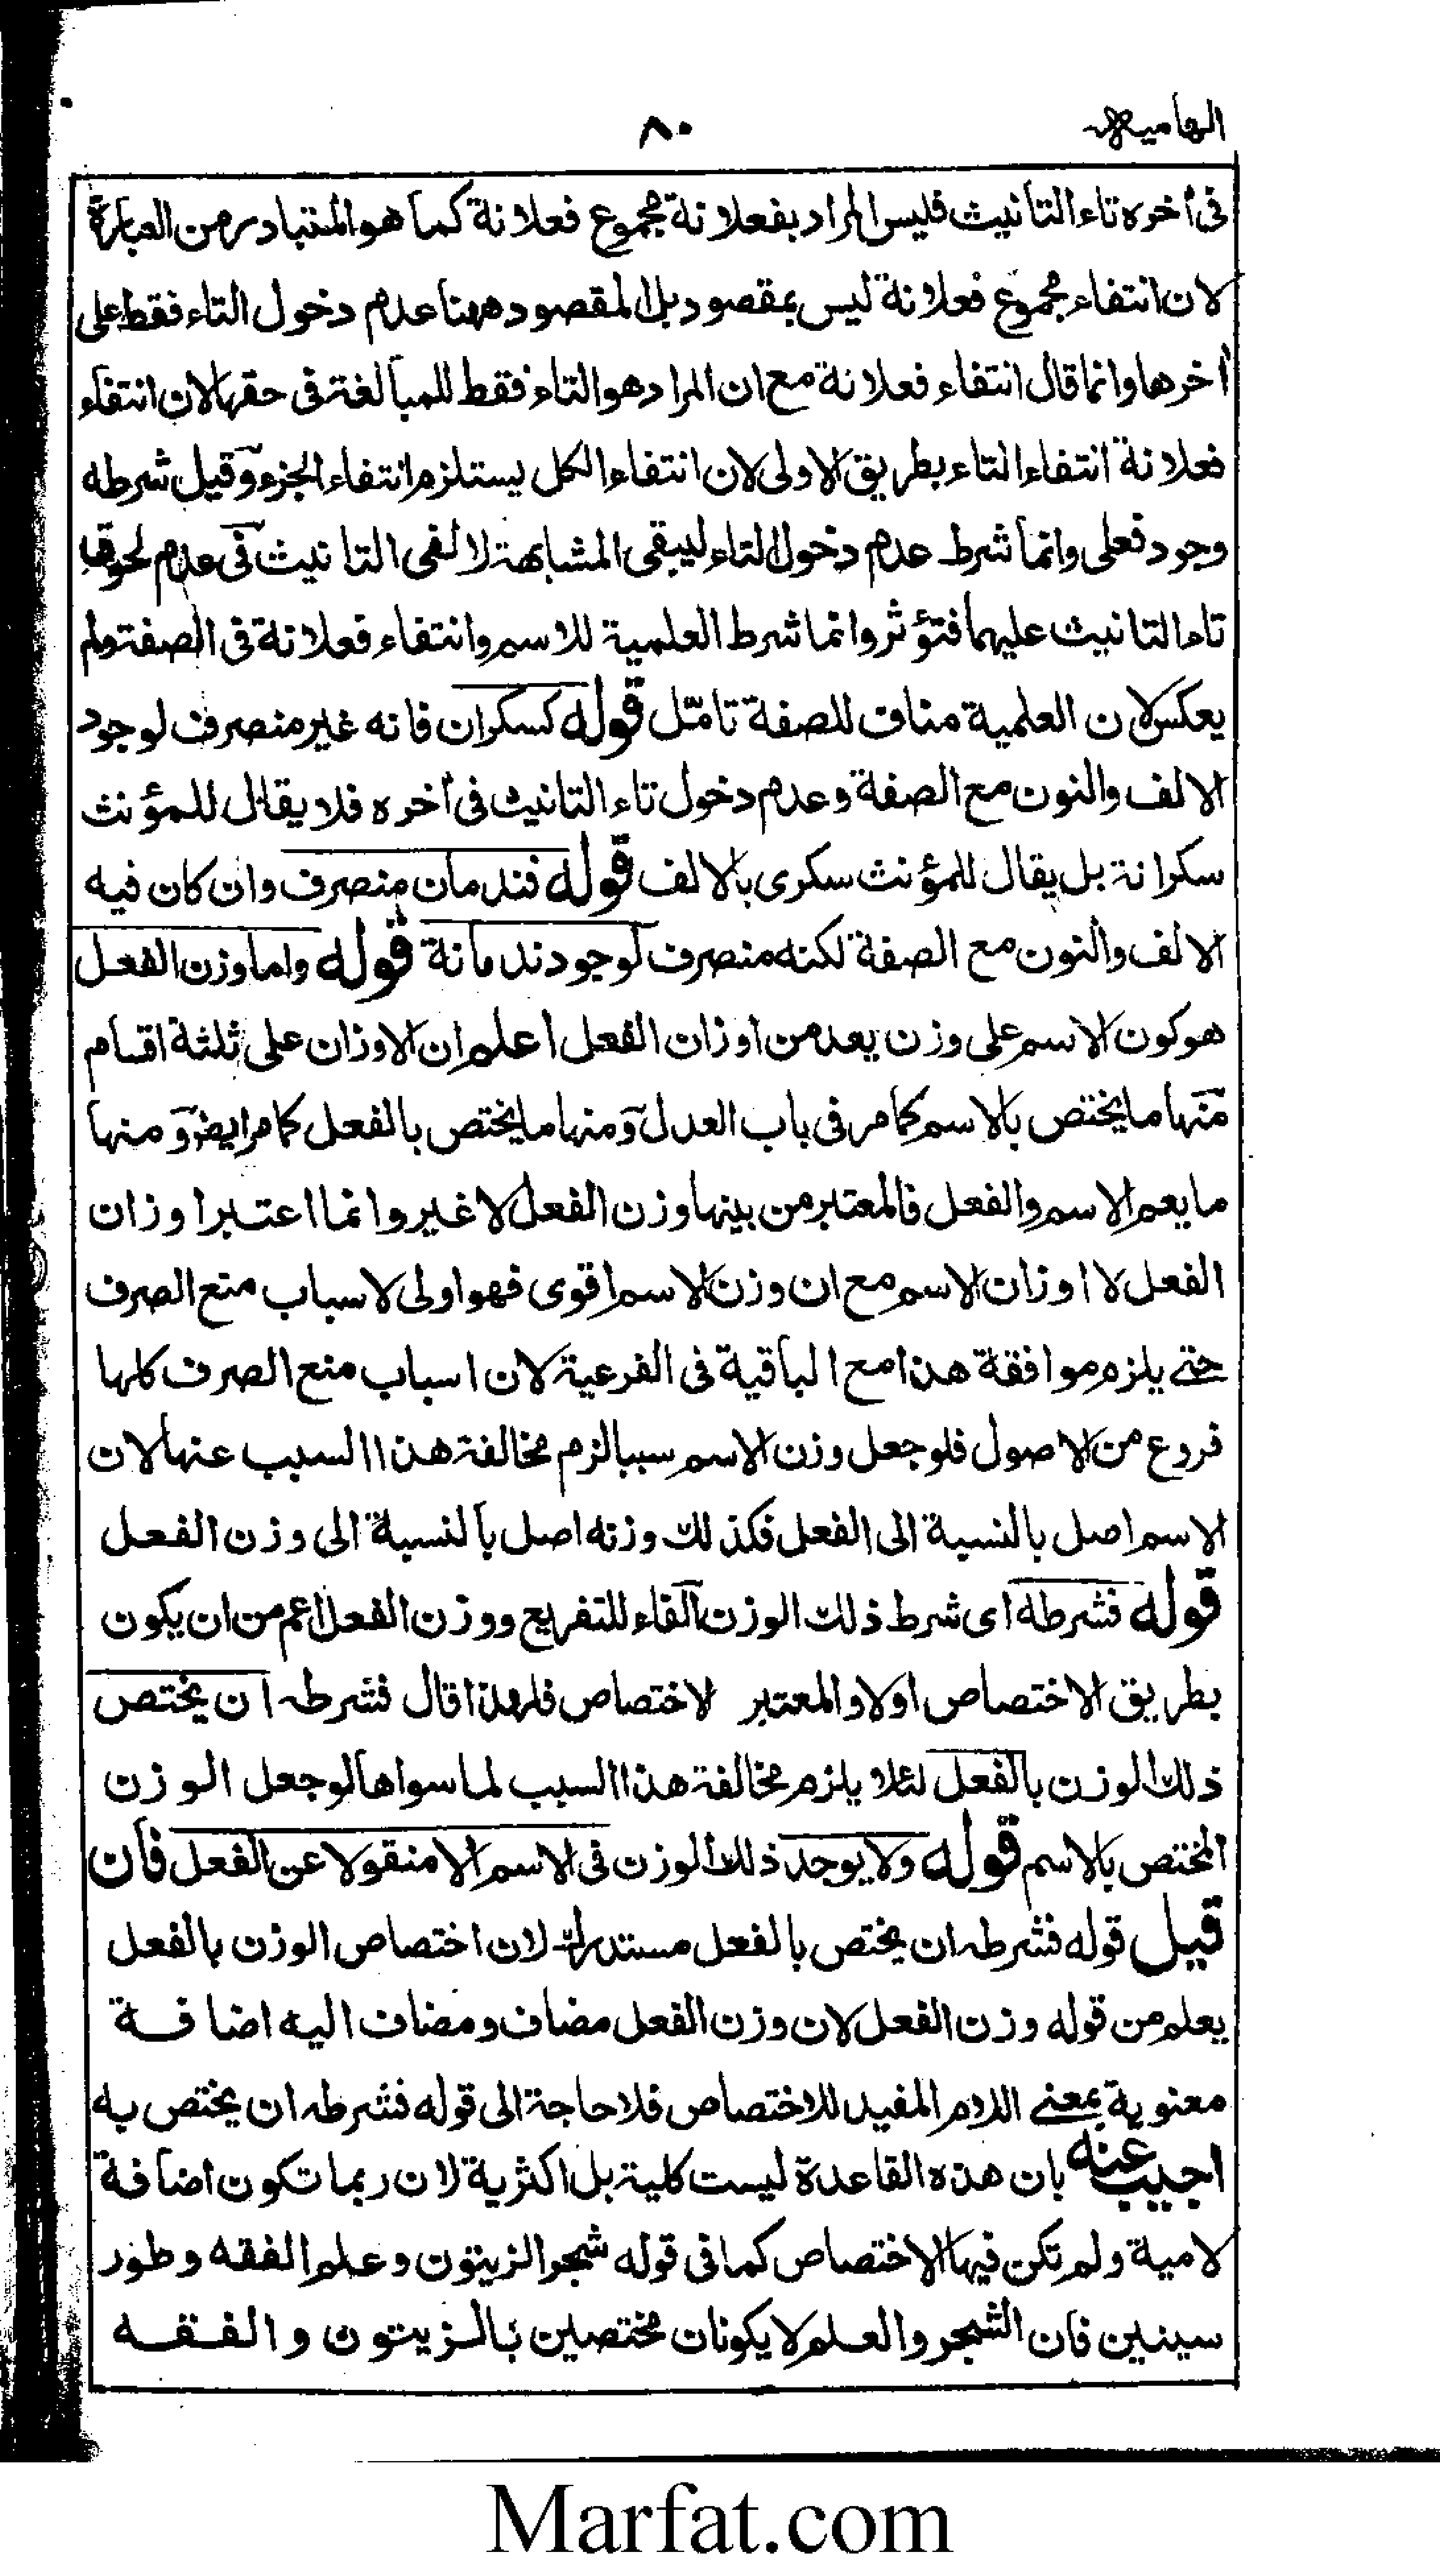 الهاميه
٨٠
فى أخره تاء التانيث فليس المراد بفعلانة مجموع فعلانة كما هو المتبادر من العبارة
لان انتفاء مجموع فعلانة ليس بمقصود بل المقصود ههنا عدم دخول التاء فقط على
أخرها وانما قال انتفاء فعلانة مع ان المراد هو التاء فقط للمبالغة فى حقها لان انتفاء
فعلانة انتفاء التاء بطريق الاولى لان انتفاء الكل يستلزم انتفاء الجزء وقيل شرطه
وجود فعلى وانما شرط عدم دخول التاء ليبقى المشابهة لالفى التانيث فى عدم لحوقها
تاء التانيث عليهما فتؤثر وانما شرط العلمية للاسم وانتفاء فعلانة فى الصفة ولم
يعكس لان العلمية مناف للصفة تامّل قوله كسكران فانه غير منصرف لوجود
الالف والنون مع الصفة وعدم دخول تاء التانيث فى أخره فلا يقال للمؤنث
سكرانة بل يقال للمؤنث سكرى بالالف قوله فندمان منصرف وان كان فيه
الالف والنون مع الصفة لكنه منصرف لوجود ندمانة قوله واما وزن الفعل
هو كون الاسم على وزن يعد من اوزان الفعل اعلم ان الاوزان على ثلثة اقسام
منها ما يختص بالاسم كما مر فى باب العدل ومنها ما يختص بالفعل كما مر ايضر ومنها
ما يعم الاسم والفعل فالمعتبر من بينها وزن الفعل لا غير وانما اعتبر اوزان
الفعل لا اوزان الاسم مع ان وزن الاسم اقوى فهو اولى لاسباب منع الصرف
حتے يلزم موافقة هذا مع الباقية فى الفرعية لان اسباب منع الصرف كلها
فروع من الاصول فلو جعل وزن الاسم سببا لزم مخالفة هذا السبب عنها لان
الاسم اصل بالنسبة الى الفعل فكذلك وزنه اصل بالنسبة الى وزن الفعل
قوله فشرطه اى شرط ذلك الوزن الفاء للتفريع ووزن الفعل اعم من ان يكون
بطريق الاختصاص اولا والمعتبر لاختصاص فلهذا قال فشرطه ان يختص
ذلك الوزن بالفعل لئلا يلزم مخالفة هذا السبب لما سواها لو جعل الوزن
المختص بالاسم قوله ولا يوجد ذلك الوزن فى الاسم الا منقولا عن الفعل فان
قيل قوله فشرطه ان يختص بالفعل مستدرك لان اختصاص الوزن بالفعل
يعلم من قوله وزن الفعل لان وزن الفعل مضاف ومضاف اليه اضافة
معنوية بمعنے اللام المفيد للاختصاص فلا حاجة الى قوله فشرطه ان يختص به
اجيب عنه بان هذه القاعدة ليست كلية بل اكثرية لان ربما تكون اضافة
لامية ولم تكن فيها الاختصاص كما فى قوله شجر الزيتون وعلم الفقه وطور
سينين فان الشجر والعلم لا يكونان مختصين بالزيتون والفقه
Marfat.com